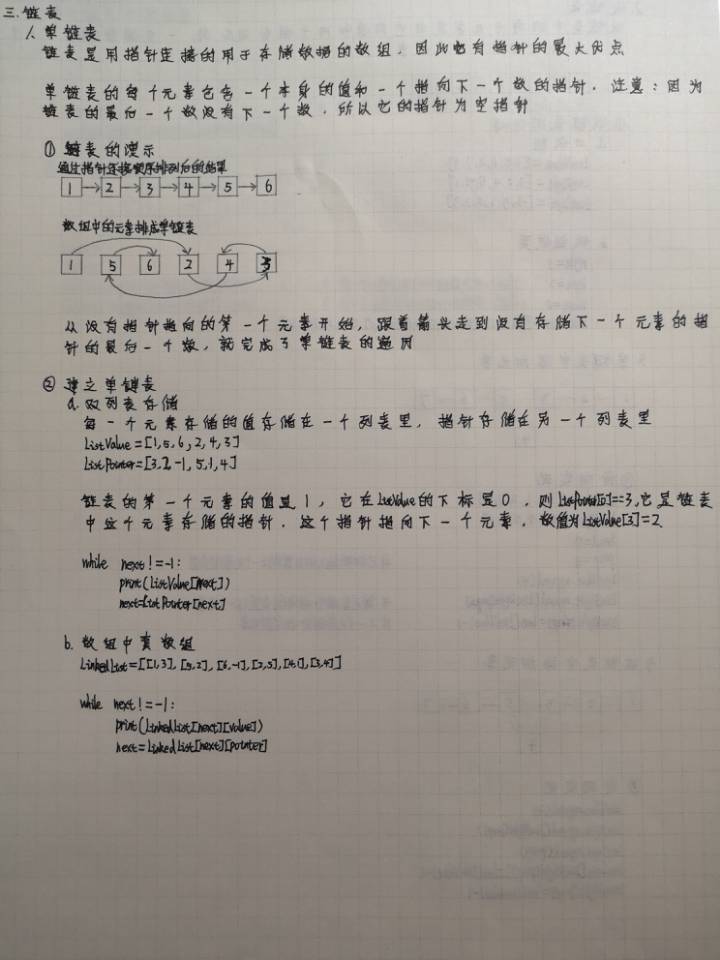 三.链表
1.单链表
链表是用指针连接的用于存储数据的数组，因此也有指针的最大优点
单链表的每个元素包含一个本身的值和一个指向下一个数的指针。注意：因为
链表的最后一个数没有下一个数，所以它的指针为空指针
①链表的演示
通过指针连接顺序排列后的结果
1→2→3→4→5→6
数组中的元素排成单链表
1 5 6 2 4 3
从没有指针指向的第一个元素开始，跟着箭头走到没有存储下一个元素的指
针的最后一个数，就完成了单链表的遍历
②建立单链表
a.双列表存储
每一个元素存储的值存储在一个列表里，指针存储在另一个列表里
ListValue=[1,5,6,2,4,3]
ListPointer=[3,2,-1,5,1,4]
链表的第一个元素的值是1，它在ListValue的下标是0，则ListPointer[0]==3,它是链表
中这个元素存储的指针。这个指针指向下一个元素，数值为ListValue[3]=2
while next!=-1:
print(ListValue[next])
next=ListPointer[next]
b.数组中真数组
LinkedList=[[1,3],[5,2],[6,-1],[2,5],[4,1],[3,4]]
while next!=-1:
print(LinkedList[next][value])
next=LinkedList[next][pointer]